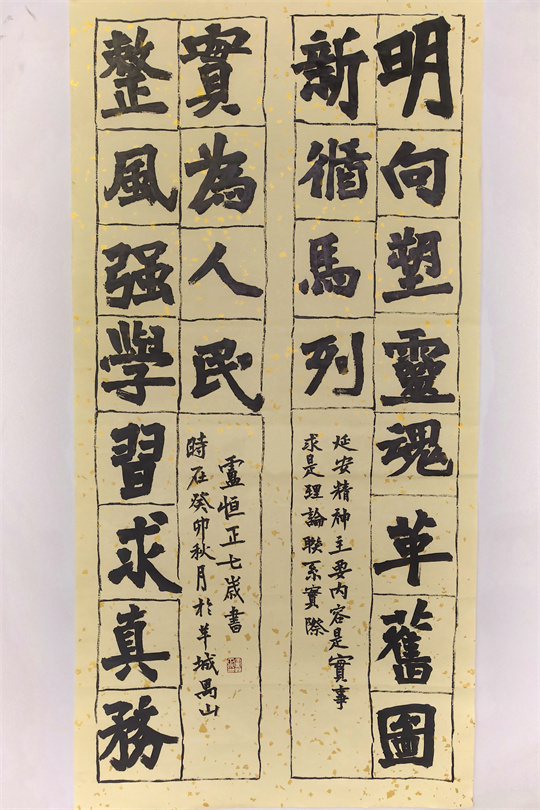 明向塑靈魂革舊圖
新循馬列
延安精神主要内容是實事
求是理論聯系實際
實為人民
整風强學習求真務
盧恒正七歲書
時在癸卯秋月於羊城禺山